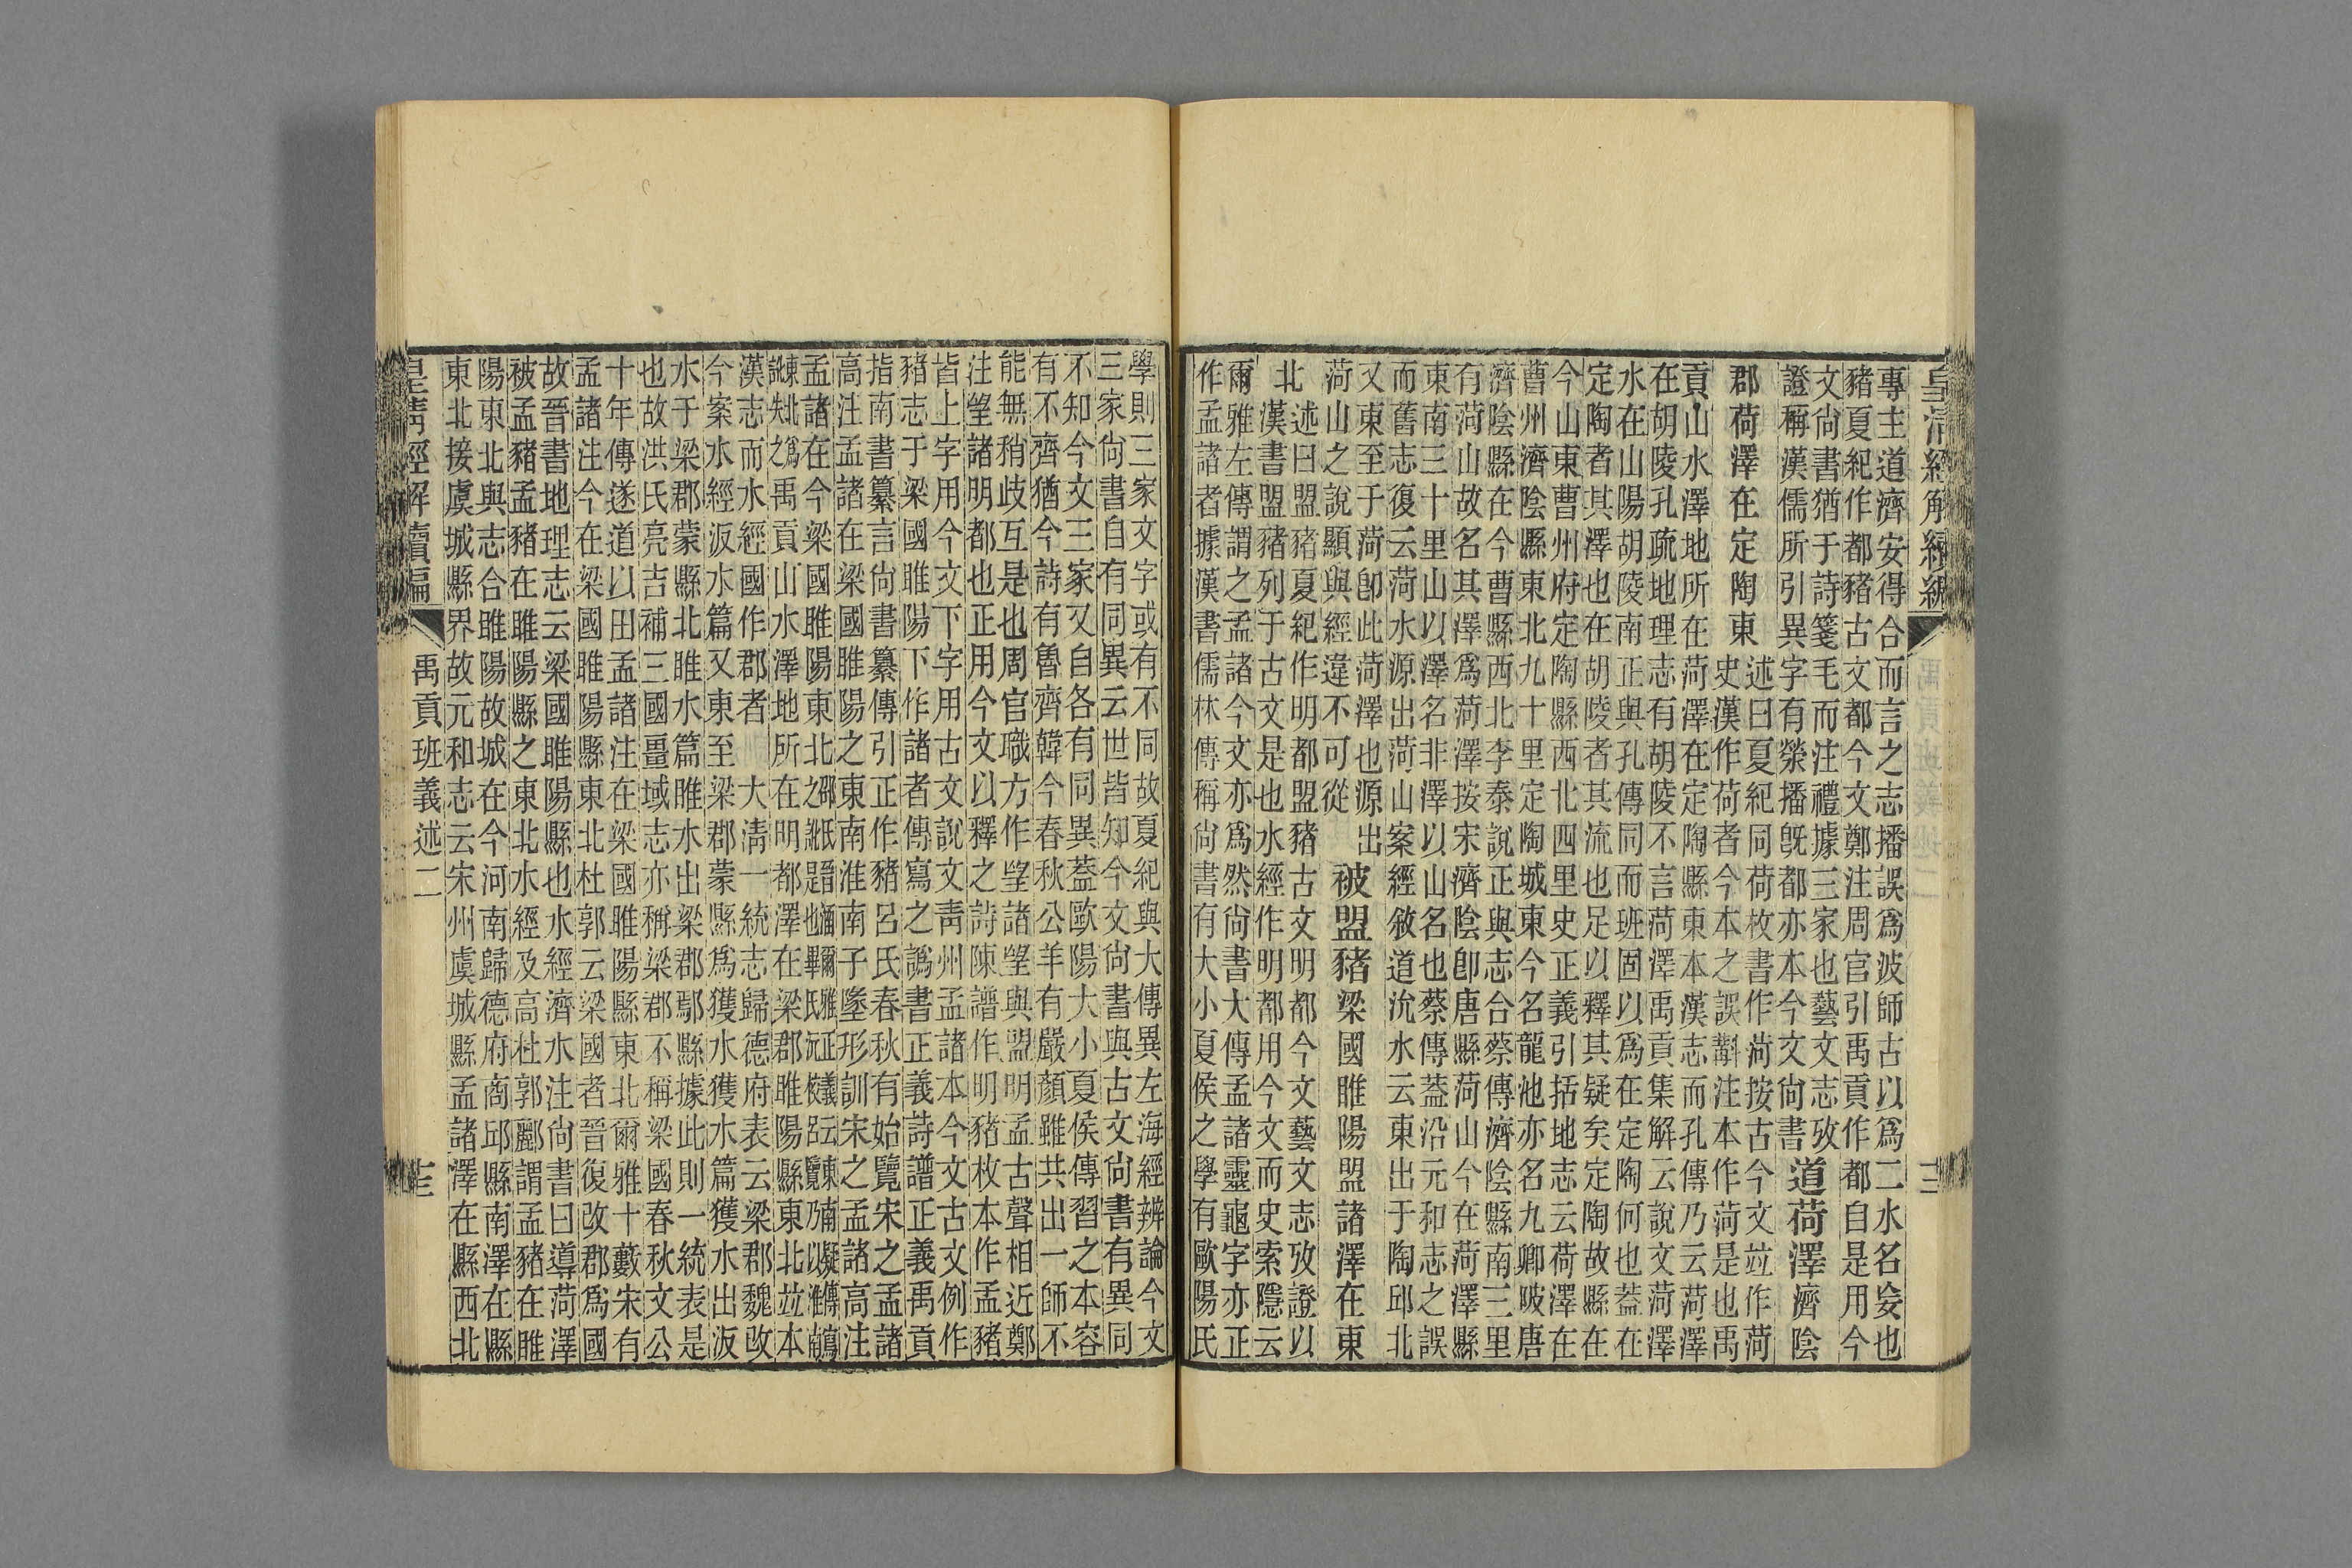 皇清經解續編
專主道濟安得合而言之志播誤爲波師古以爲二水名妄也
豬夏紀作都豬古文都今文鄭注周官引禹貢作都自是用今
文尚書猶于詩箋毛而注禮據三家也藝文志攷
證稱漢儒所引異字有滎播旣都亦本今文尚書
道荷澤 濟陰
郡荷澤在定陶東
述曰夏紀同荷枚書作菏按古今文竝作菏
史漢作荷者今本之誤斠注本作菏是也禹
貢山水澤地所在菏澤在定陶縣東本漢志而孔傳乃云菏澤
在胡陵孔疏地理志有胡陵不言菏澤禹貢集解云說文菏澤
水在山陽胡陵南正與孔傳同而班固以爲在定陶何也蓋在
定陶者其澤也在胡陵者其流也足以釋其疑矣定陶故縣在
今山東曹州府定陶縣西北四里史正義引括地志云荷澤在
曹州濟陰縣東北九十里定陶城東今名龍池亦名九卿陂唐
濟陰縣在今曹縣西北李泰說正與志合蔡傳濟陰縣南三里
有菏山故名其澤爲菏澤按宋濟陰卽唐縣菏山今在菏澤縣
東南三十里山以澤名非澤以山名也蔡傳蓋沿元和志之誤
而舊志復云菏水源出菏山案經敘道沇水云東出于陶邱北
又東至于菏卽此菏澤也源出
菏山之說顯與經違不可從
被盟豬 梁國睢陽盟諸澤在東
北
述曰盟豬夏紀作明都盟豬古文明都今文藝文志攷證以
漢書盟豬列于古文是也水經作明都用今文而史索隱云
爾雅左傳謂之孟諸今文亦爲然尚書大傳孟諸靈龜字亦正
作孟諸者據漢書儒林傳稱尚書有大小夏侯之學有歐陽氏
學則三家文字或有不同故夏紀與大傳異左海經辨論今文
三家尚書自有同異云世皆知今文尚書與古文尚書有異同
不知今文三家又自各有同異蓋歐陽大小夏侯傳習之本容
有不齊猶今詩有魯齊韓今春秋公羊有嚴顏雖共出一師不
能無稍歧互是也周官職方作望諸望與盟明孟古聲相近鄭
注望諸明都也正用今文以釋之詩陳譜作明豬枚本作孟豬
皆上字用今文下字用古文說文青州孟諸本今文古文例作
豬志于梁國睢陽下作諸者傳寫之譌書正義詩譜正義禹貢
指南書纂言尚書纂傳引正作豬呂氏春秋有始覽宋之孟諸
高注孟諸在梁國睢陽之東南淮南子墬形訓宋之孟諸高注
孟諸在今梁國睢陽東北邵氏晉涵爾雅正義云東南疑傳寫之訛是也畢氏沅校呂覽乃以淮南
東北爲訛失之禹貢山水澤地所在明都澤在梁郡睢陽縣東北竝本
漢志而水經國作郡者 大清一統志歸德府表云梁郡魏改
今案水經汳水篇又東至梁郡蒙縣爲獲水獲水篇獲水出汳
水于梁郡蒙縣北睢水篇睢水出梁郡鄢縣據此則一統表是
也故洪氏亮吉補三國畺域志亦稱梁郡不稱梁國春秋文公
十年傳遂道以田孟諸注在梁國睢陽縣東北爾雅十藪宋有
孟諸注今在梁國睢陽縣東北杜郭云梁國者晉復改郡爲國
故晉書地理志云梁國睢陽縣也水經濟水注尚書曰導菏澤
被孟豬孟豬在睢陽縣之東北水經及高杜郭酈謂孟豬在睢
陽東北與志合睢陽故城在今河南歸德府商邱縣南澤在縣
東北接虞城縣界故元和志云宋州虞城縣孟諸澤在縣西北
皇清經解續編 禹貢班義述二 十三